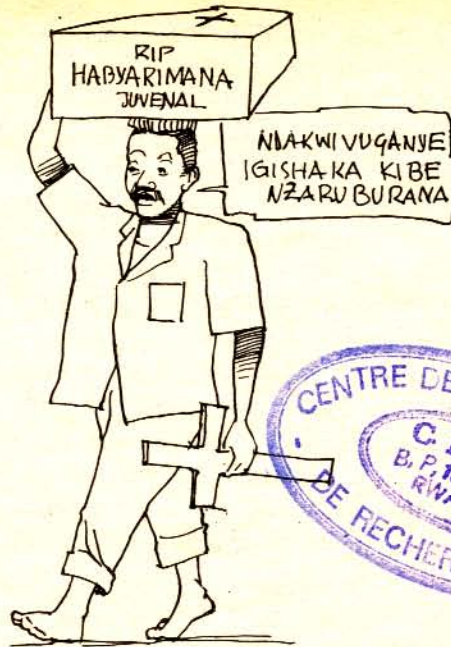 RIP
HABYARIMANA
JUVENAL
NDAKWIVUGANYE
IGISHAKA KIBE
NZARUBURANA
CENTRE DE
B.P.
DE RECHER